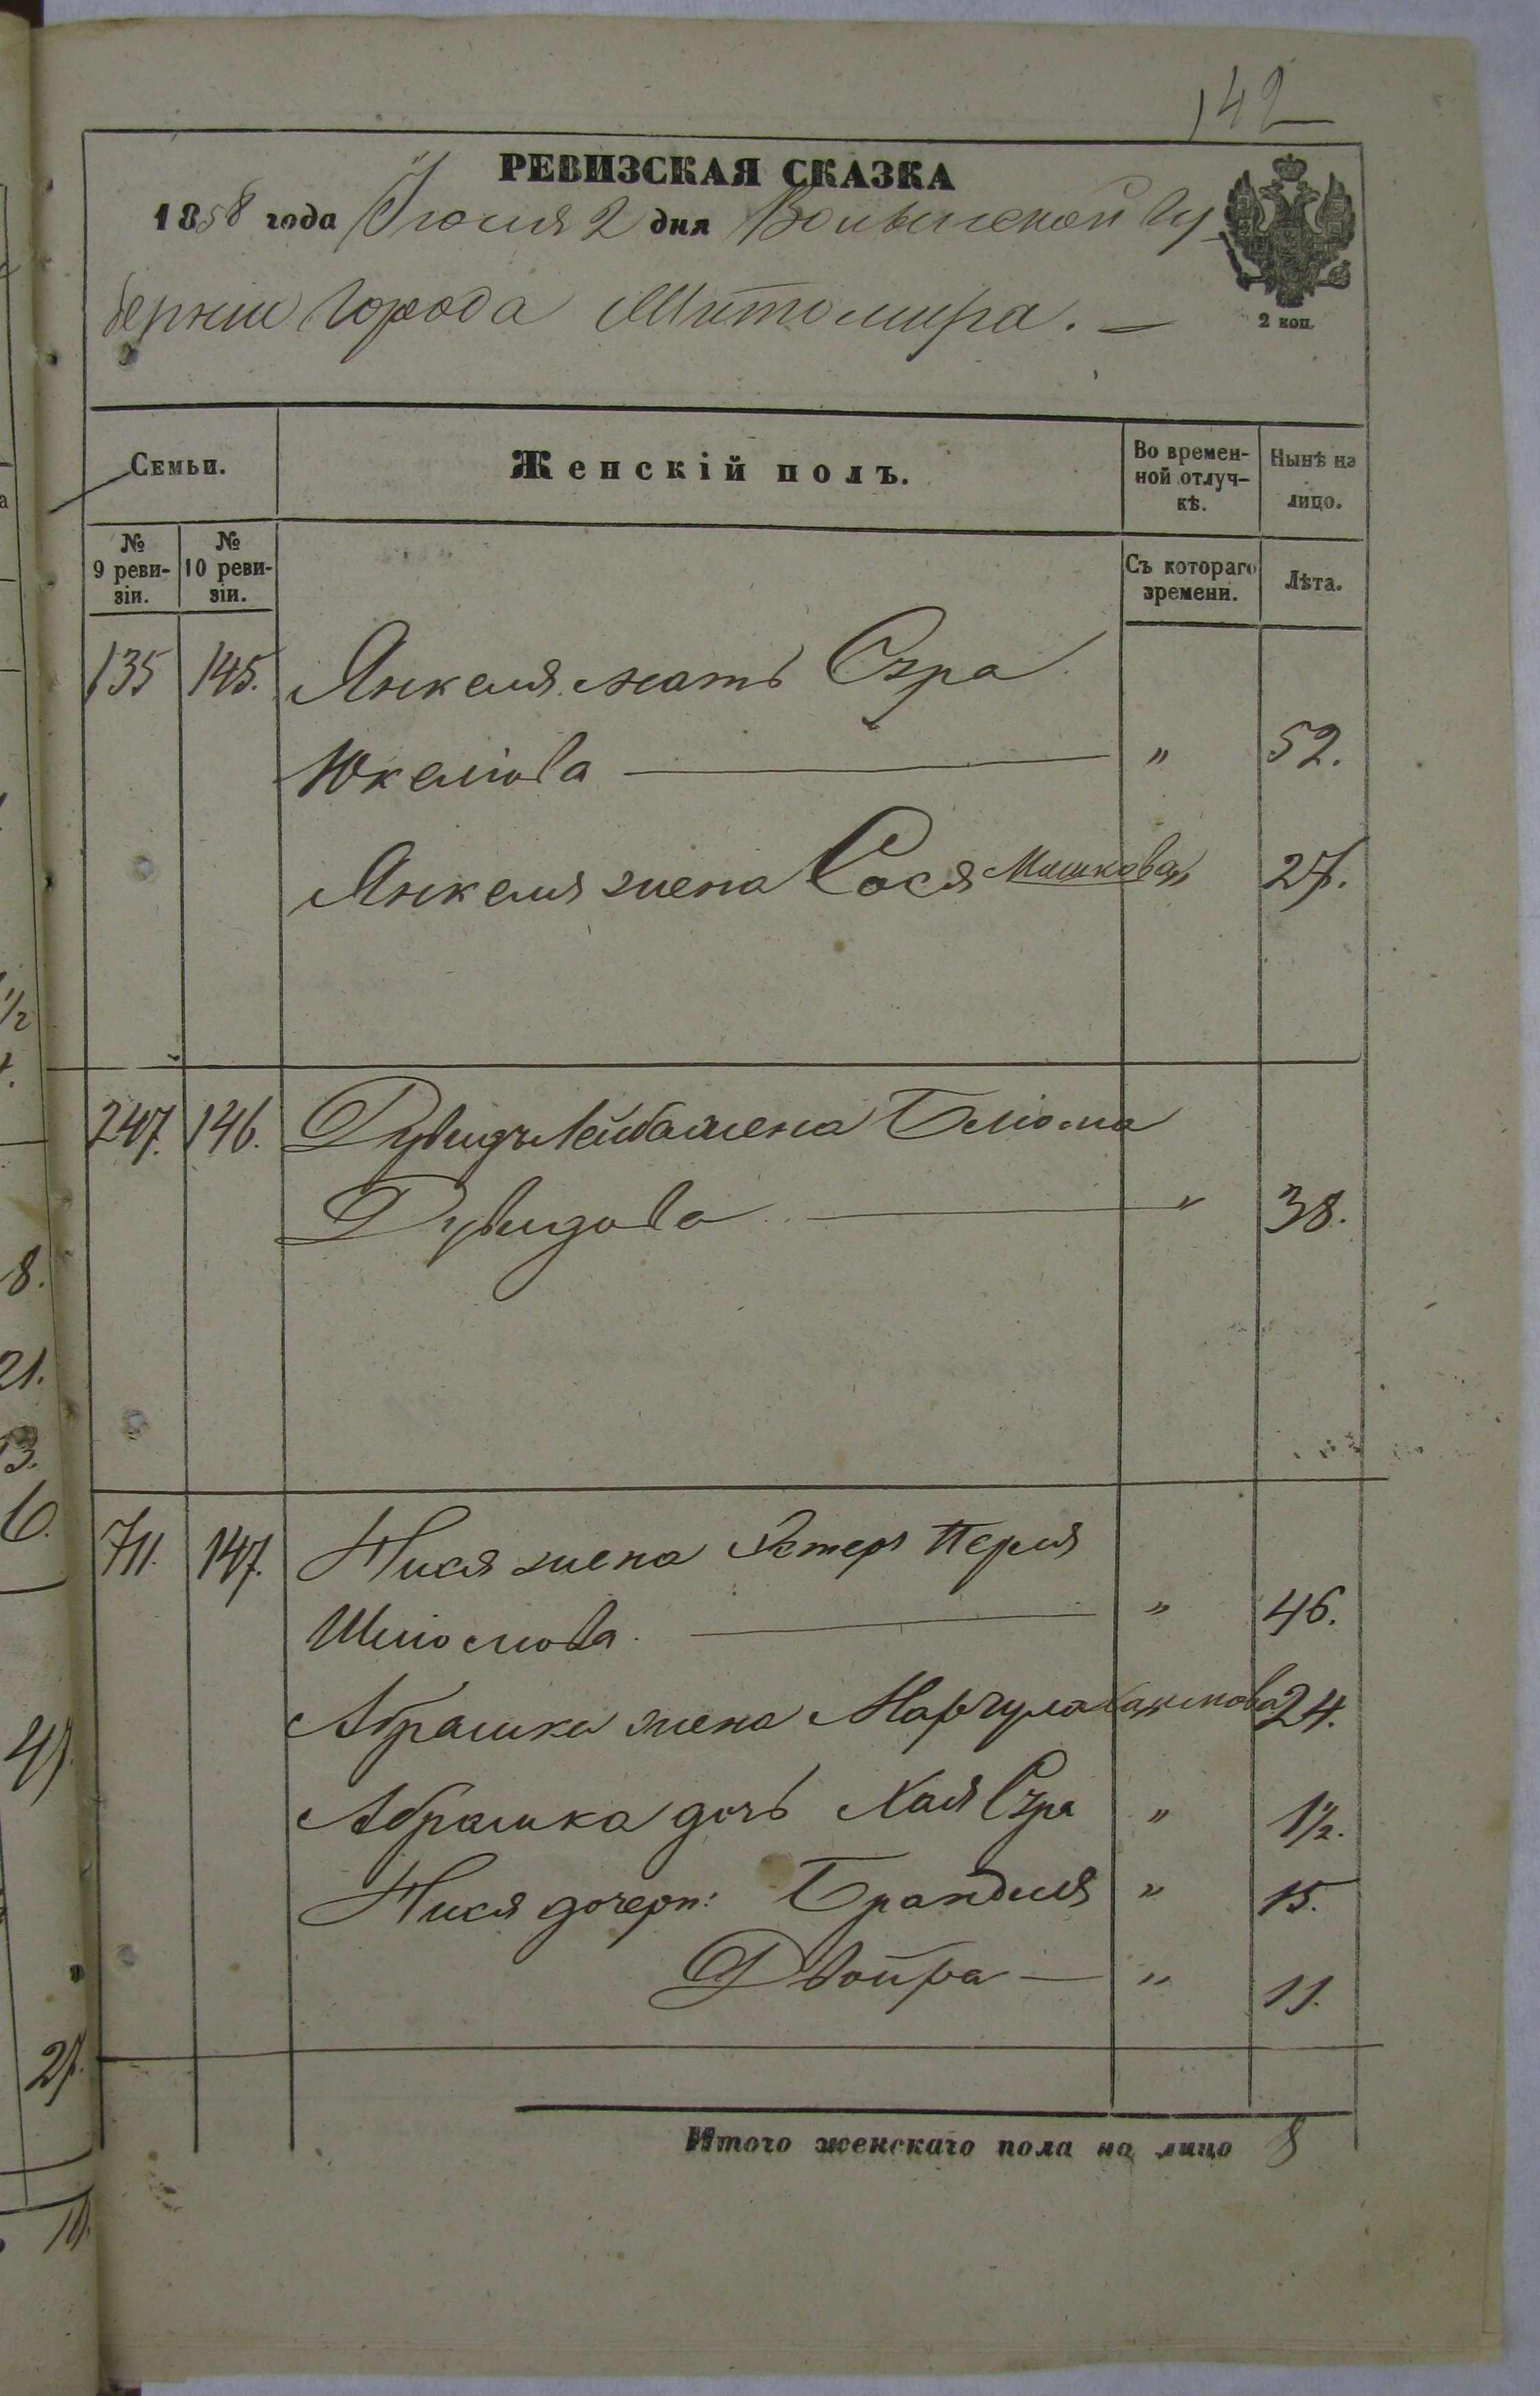 142
РЕВИЗСКАЯ СКАЗКА
1858 года Июня 2 дня Волынской Гу-
берніи Города Житомира. —
2 коп.
Семьи.
Женскій полъ.
Во времен-
ной отлуч-
кѣ.
Нынѣ на
лицо.
№
9 реви-
зіи.
№
10 реви-
зіи.
Съ котораго
времени.
Лѣта.
135 145. Янкеля мать Сура
Юкелiова — " 52.
Янкеля жена Сося Мошковая " 27.
247. 146. Дувидъ Лейба жена Блюма
Дувидова — " 38.
711. 147. Нися жена Эстеръ Перля
Шліомова — " 46.
Абрашка жена 24.
Абрашка дочь Хая Сура " 1½.
Нися дочери: Брандля " 15.
Двойра — " 11.
Итого женскаго пола на лицо 8